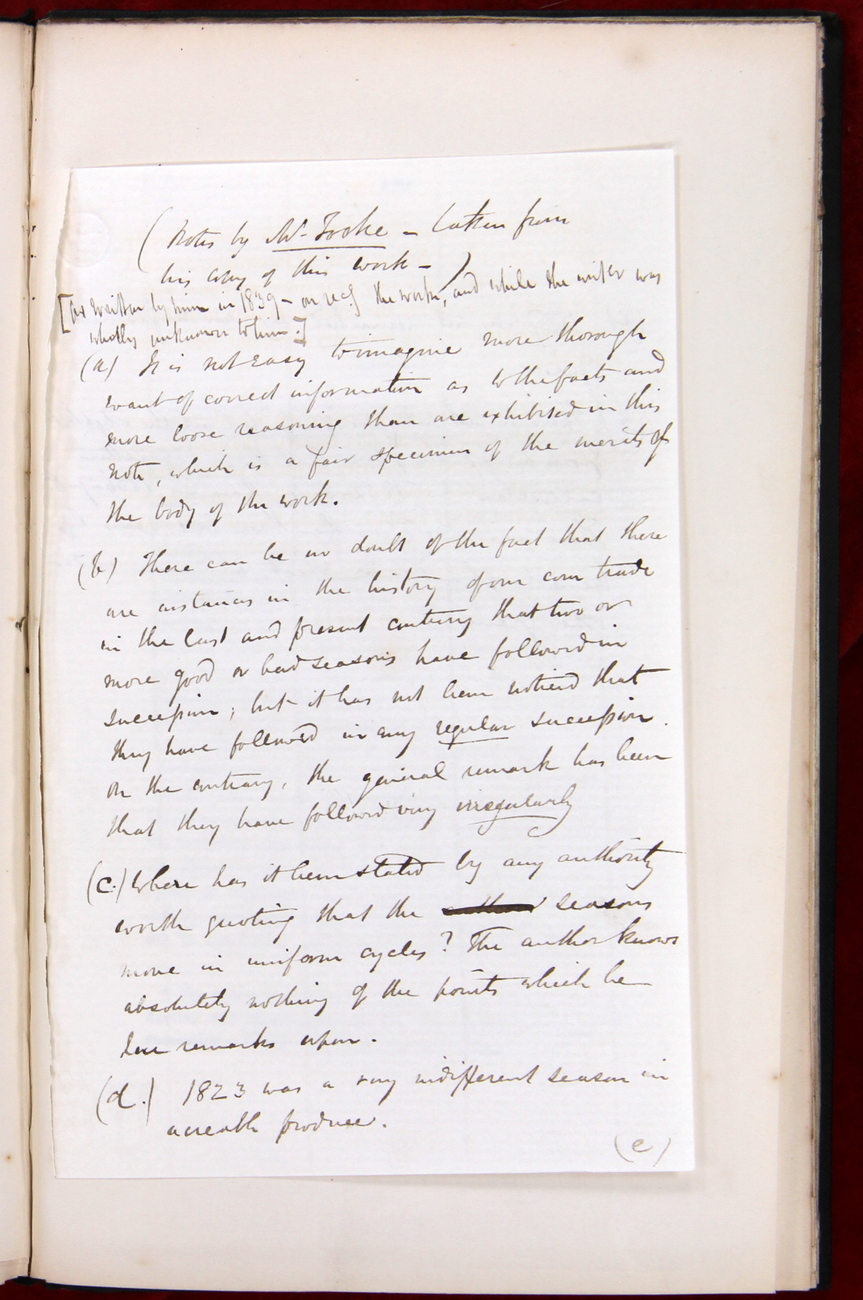 (Notes by Mr. Tooke – taken from
his copy of this work –)
[as written by him in 1839 – on recg the work, and while the writer was
wholly unknown to him.]
(a) It is not easy to imagine more thorough
want of correct information as to the facts and
more loose reasoning than are exhibited in this
note, which is a fair specimen of the merits of
the body of the work.
(b) There can be no doubt of the fact that there
are instances in the history of our corn trade
in the last and present century that two or
more good or bad seasons have followed in
succession; but it has not been noticed that
they have followed in any regular succession.
On the contrary, the general remark has been
that they have followed very irregularly
(c.) Where has it been stated by any authority
worth quoting that the seasons
move in uniform cycles? The author knows
absolutely nothing of the points which he
here remarks upon.
(d.) 1823 was a very indifferent season in
acreable produce.
(e)